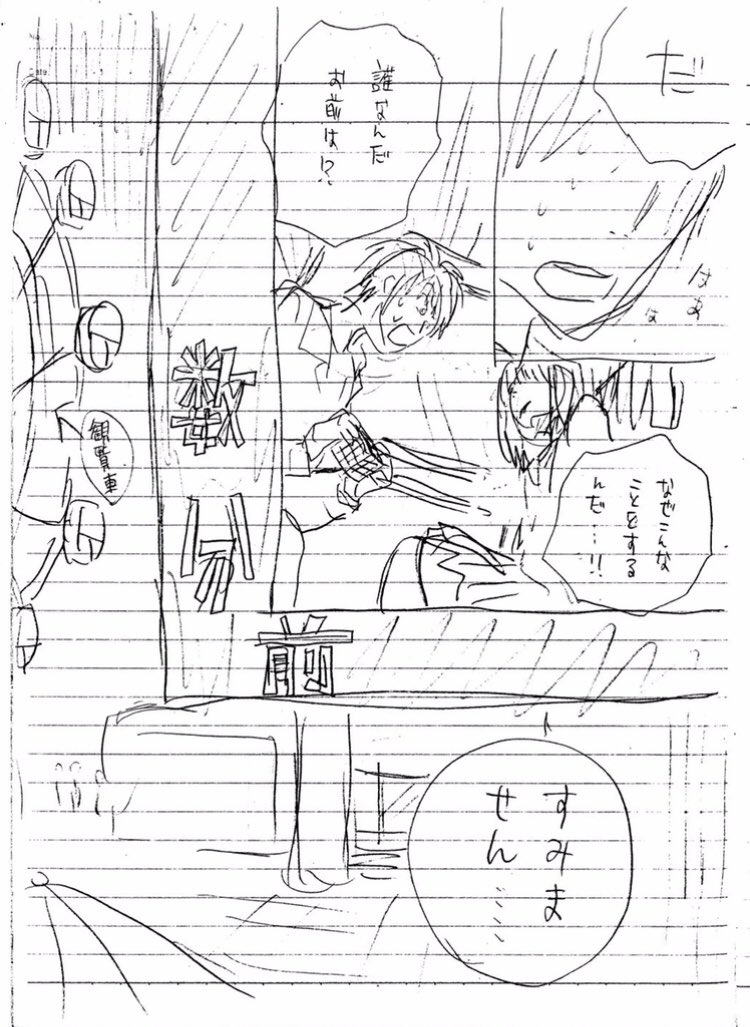 だ
はぁ
は
誰なんだ
お前は!?
なぜこんな
ことをする
んだ…!!
数分前
観覧車
すみま
せん……